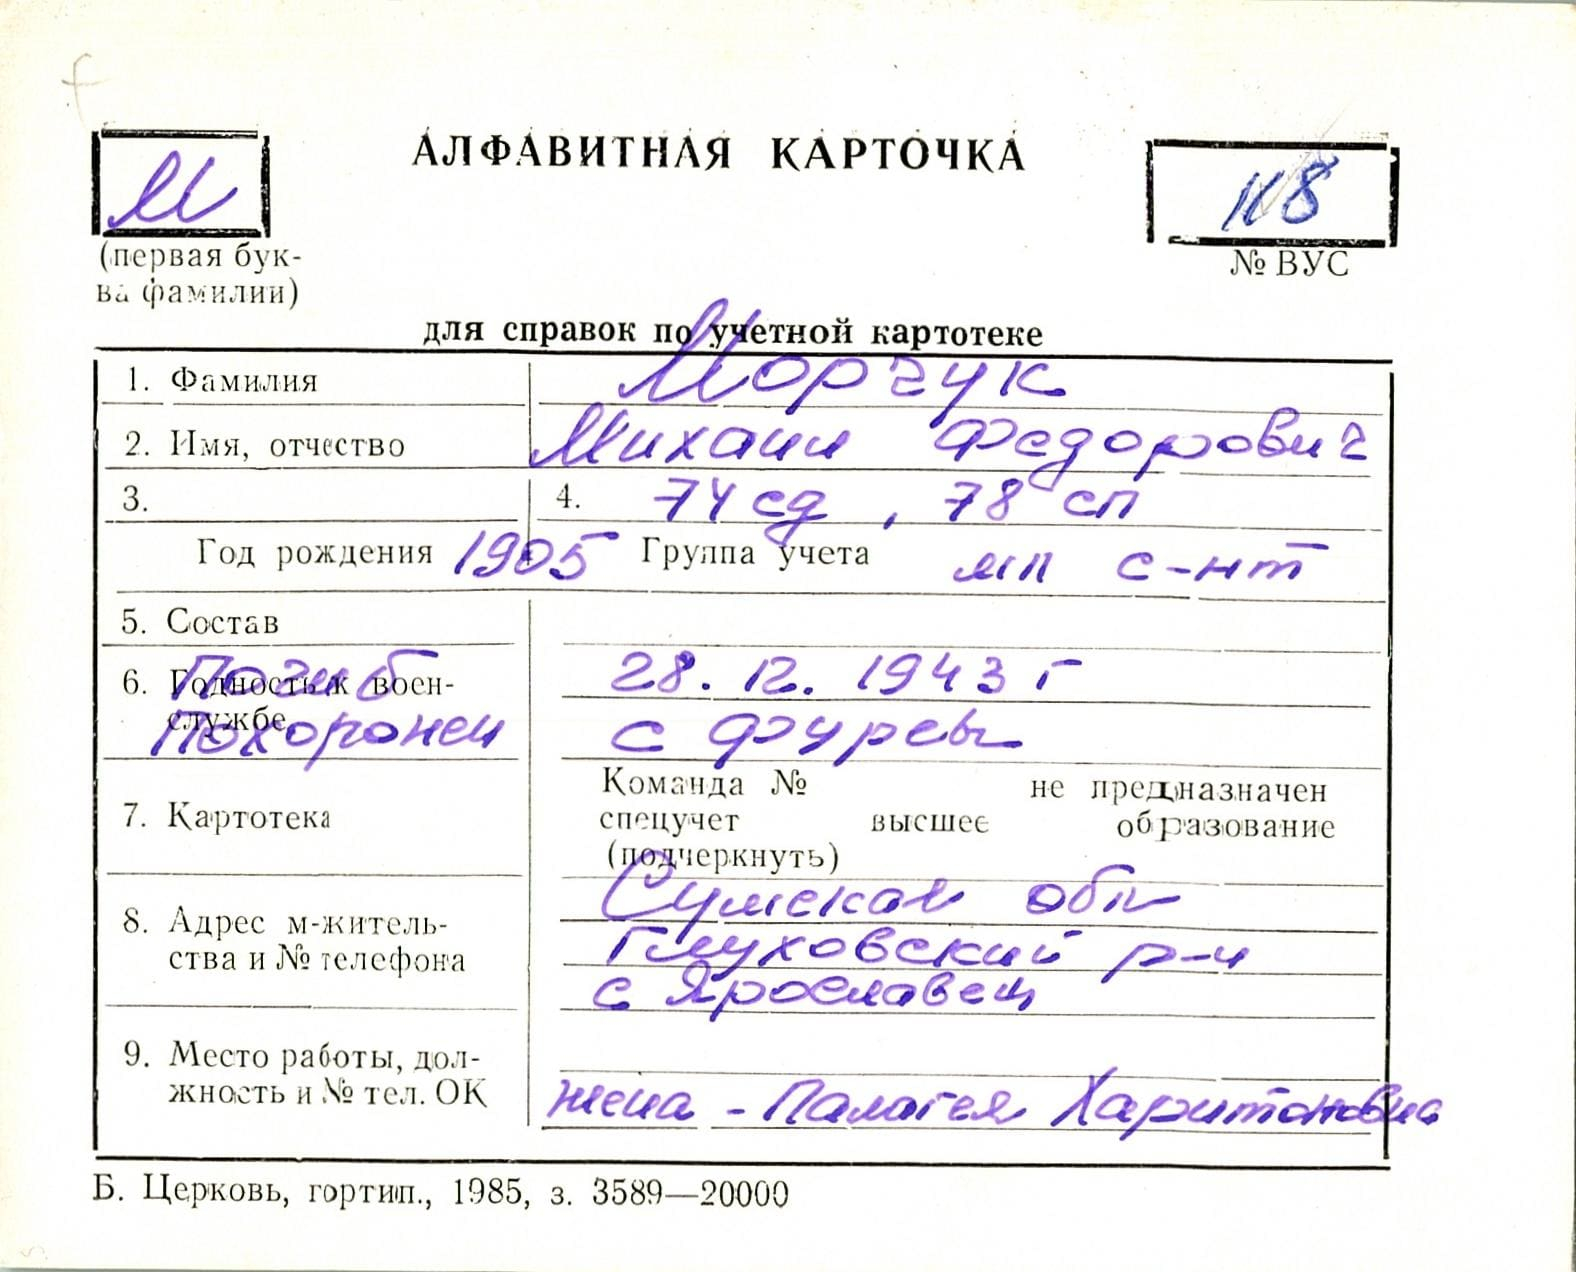 АЛФАВИТНАЯ КАРТОЧКА
М
(первая бук-
ва фамилии)
118
№ ВУС
для справок по учетной картотеке
1. Фамилия Морчук
2. Имя, отчество Михаил Федорович
3. 4. 74 сд, 78 сп
Год рождения 1905 Группа учета мл с-нт
5. Состав
6. Годность к воен- Погиб 28. 12. 1943 г
службе Похоронен с Фурсы
7. Картотека
Команда № не предназначен
спецучет высшее образование
(подчеркнуть)
8. Адрес м-житель-
ства и № телефона
Сумская обл
Глуховский р-н
с Ярославец
9. Место работы, дол-
жность и № тел. ОК
жена - Палагея Харитоновна
Б. Церковь, гортип., 1985, з. 3589—20000